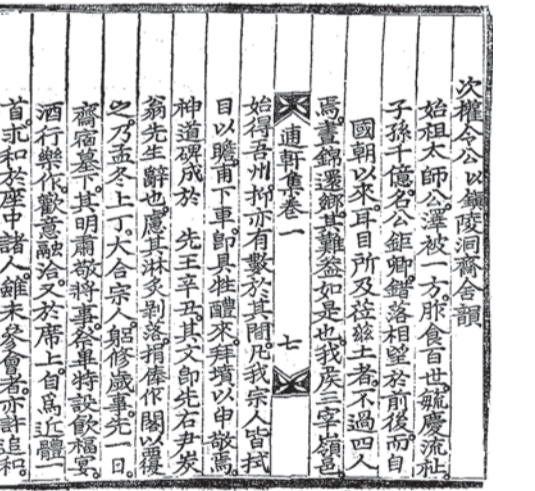 次權令公以鎭陵洞齋舍韻
始祖太師公澤被一方胙食百世毓慶流祉
子孫千億名公鉅卿錯落相望於前後而自
國朝以來耳目所及莅玆土者不過四人
焉晝錦還鄕其難盖如是也我侯三宰嶺邑
逋軒集卷一 七
始得吾州抑亦有數於其間凡我宗人皆拭
目以瞻甫下車卽具牲醴來拜墳以申敬焉
神道碑成於 先王辛丑其文卽先右尹炭
翁先生辭也慮其淋炙剝落捐俸作閣以覆
之乃孟冬上丁大合宗人躬修歲事先一日
齋宿墓下其明肅敬將事祭畢特設飮福宴
酒行樂作歡意融洽又於席上自爲近體一
首求和於座中諸人雖未參會者亦許追和